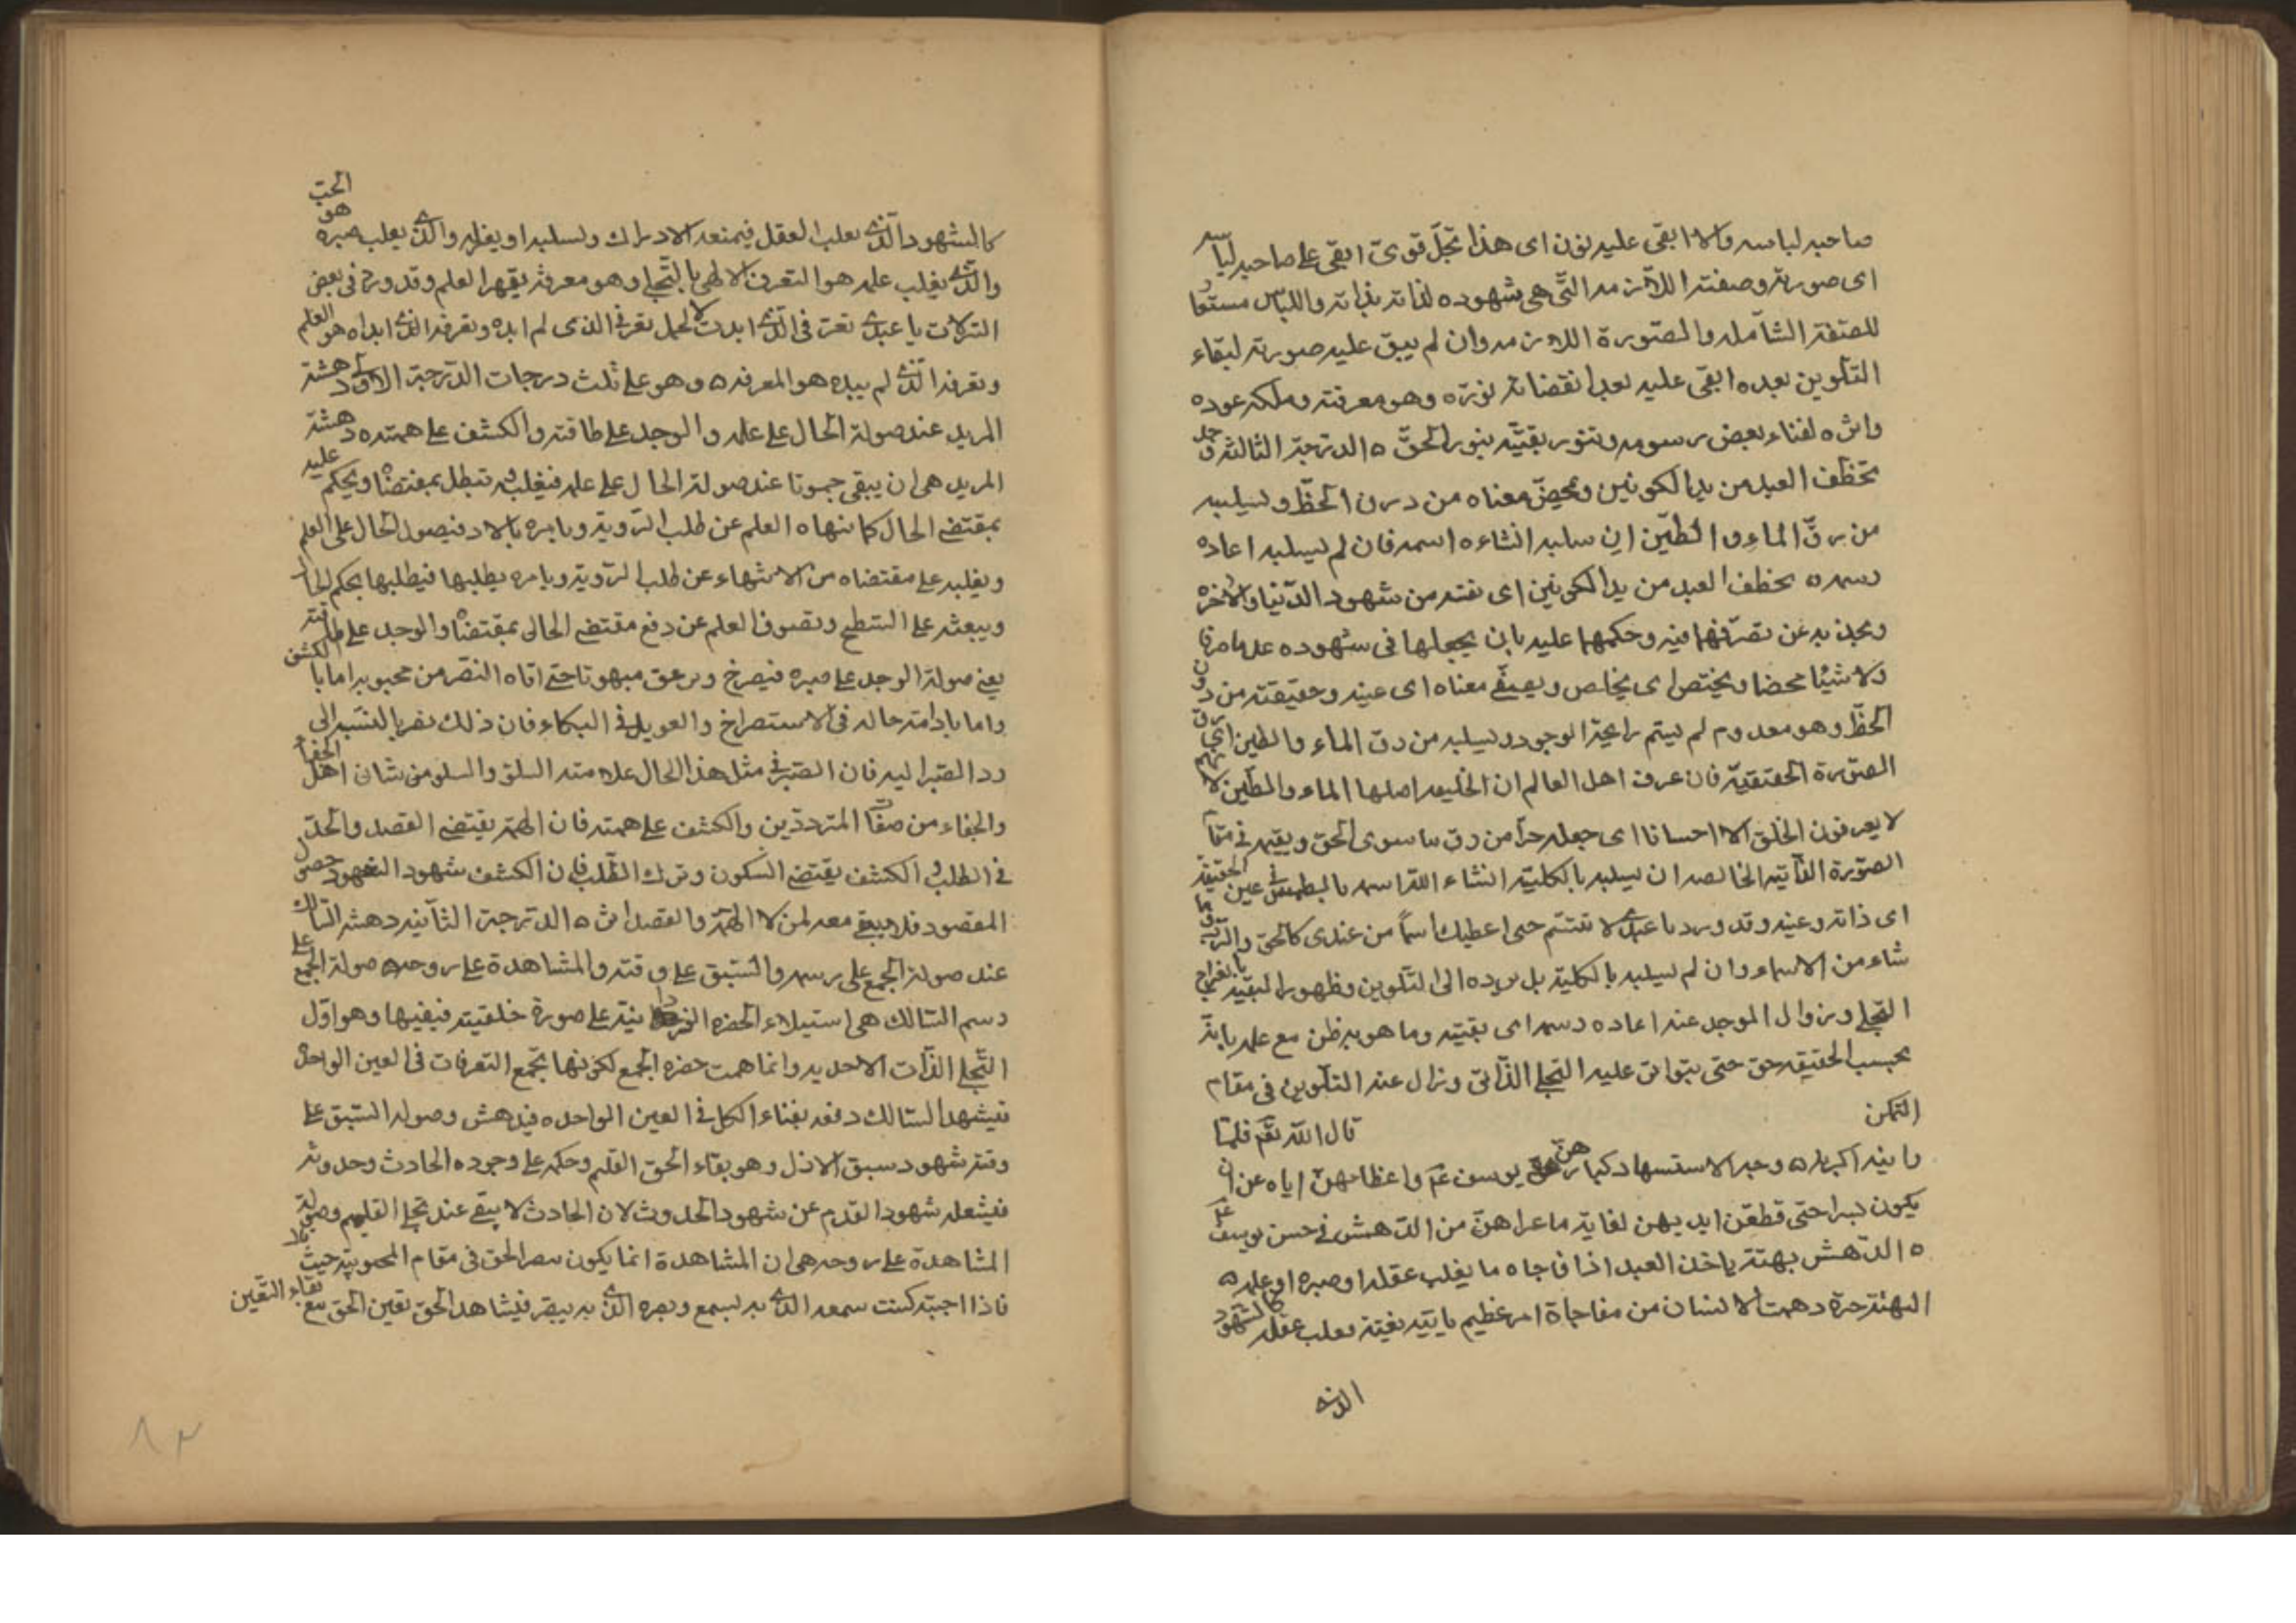 صاحبه لباسه والا ابقى عليه نوره اى هذا تجلّ قوىّ ابقى على صاحبه لباسه
اى صورته وصفته اللازمه التى هى شهوده لذاته بذاته واللباس مستعا
للصفة الشاملة والصورة اللازمه وان لم يبق عليه صورته لبقاء
التلوين بعده ابقى عليه بعد انقضائه نوره وهو معرفته وملكه عوده
واثره لفناء بعض رسومه وتنور بقيّته بنور الحقّ ه الدرجة الثالثة وجد
تخطف العبد من يد الكونين وتمحض معناه من درن الحظّ ويسلبه
من رقّ الماء والطين ان سلبه انشاءه اسمه فان لم يسلبه اعاده
رسمه ه تخطف العبد من يد الكونين اى تفته من شهود الدنيا والآخرة
وتجذبه عن تصرّفهما فيه وحكمهما عليه بان يجعلها فى شهوده عدما صرفا
ولا شيئا محضا ويختص اى يخلص ويصفى معناه اى عينه وحقيقته من درن
الحظّ وهو معدوم لم يشم رايحة الوجود ويسلبه من رق الماء والطين اى رق
الصورة الخلقية فان عرف اهل العالم ان الخليقه اصلها الماء والطين لانهم
لا يعرفون الخلق الا احسانا اى جعله حرّا من رق ما سوى الحق ويقيمه فى مقا
الصورة الفانية الخالصه ان سلبه بالكلية انشاء الله اسمه بالطمس فى عين الحقيقة
اى ذاته وعينه وقد ورد يا عبدى لا تتسّم حتى اعطيك اسماً من عندى كالحق والرب وما
شاء من الاسماء وان لم يسلبه بالكلية بل يرده الى التلوين وظهور البقية بانفراج
التجلى وزوال الوجد عنه اعاده رسمه اى بقيته وما هو به ظن مع علمه بانه
بحسب الحقيقه حق حتى يتوالى عليه التجلى الذاتى وزال عنه التلوين فى مقام
التمكن
قال الله تعم فلمّا
راينه اكبرنه ه وجه الاستشهاد كبارهنّ يوسف عم واعظامهنّ اياه عن ان
يكون بشرا حتى قطعن ايديهن لغاية ما عراهنّ من الدهش فى حسن يوسف عم
ه الدهش بهتة ياخذ العبد اذا فاجاه ما يغلب عقله او صبره او علمه ه
البهتة حيرة دهمت الانسان من مفاجاة امر عظيم ياتيه بغتة يغلب عقله كالشهود
الذى
كالشهود الذى يغلب العقل فيمنعه الادراك ويسلبه او يغلبه والذى يغلب صبره هو الحبّ
والذى يغلب علمه هو التعرف الالهى بالتجلى وهو معرفة يقهر العلم وقد ورد فى بعض
التنزلات يا عبدى تعرفى الذى ابديت لا يحمل تعرفى الذى لم ابده وتعرفه الذى ابداه هو العلم
وتعرفه الذى لم يبده هو المعرفه ه وهو على ثلث درجات الدرجة الاولى دهشة
المريد عند صولة الحال على علمه والوجد على طاقته والكشف على همته ه دهشة
المريد هى ان يبقى مبهوتا عند صولة الحال على علمه فيغلبه وتبطل بمقتضاه ويحكم عليه
بمقتضى الحال كما نهاه العلم عن طلب الرؤية ويامره بالادب فيصول الحال على العلم
ويغلبه على مقتضاه من الانتهاء عن طلب الرؤية ويامره بطلبها فيطلبها بحكم الحال
ويبعثه على الشطح وتصوف العلم عن دفع مقتضى الحال بمقتضاه والوجد على طاقته
يعنى صولة الوجد على صبره فيصرخ ويزعق مبهوتا حتى اتاه النصر من محبوبه اما بالكشف
واما بادامة حاله فى الاستصراخ والعويل فى البكاء فان ذلك نصر بالنسبة الى
رد الصبر اليه فان الصبر فى مثل هذا الحال علامته السلو والسلو من شان اهل الجفاء
والجفاء من صفات المتردّدين والكشف على همته فان الهمّة يقتضى القصد والجدّ
فى الطلب والكشف يقتضى السكون وترك الطلب فان الكشف شهود الشهود حصول
المقصود فلا يبقى معه لمن لا الهمّة والقصد اثر ه الدرجة الثانيه دهشة السالك
عند صولة الجمع على رسمه والسبق على وقته والمشاهدة على روحه ه صولة الجمع على
رسم السالك هى استيلاء الحضرة الفردانية على صورة خلقيته فيفنيها وهو اوّل
التجلى الذات الاحديه وانما سميت حضرة الجمع لكونها تجمع التعرفات فى العين الواحدة
فيشهد السالك دفعه بفناء الكل فى العين الواحده فيدهش وصولة السبق على
وقته شهود سبق الازل وهو بقاء الحق القديم وحكمه على وجوده الحادث وحدوثه
فيشغله شهود القدم عن شهود الحدوث لان الحادث لا يبقى عند تجلى القديم وصولة
المشاهدة على روحه هى ان المشاهدة انما يكون ببصر الحق فى مقام المحبوبية حيث قال
فاذا احببته كنت سمعه الذى به يسمع وبصره الذى به يبصر فيشاهد الحق بعين الحق مع بقاء التعين
٨٣